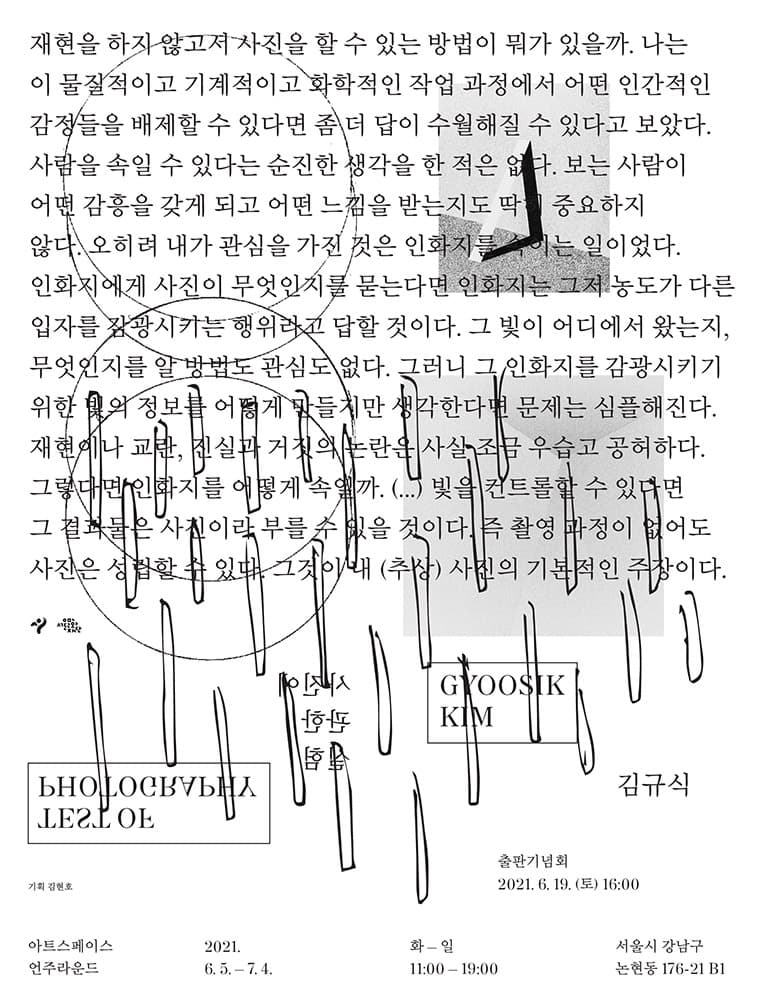 재현을 하지 않고서 사진을 할 수 있는 방법이 뭐가 있을까. 나는
이 물질적이고 기계적이고 화학적인 작업 과정에서 어떤 인간적인
감정들을 배제할 수 있다면 좀 더 답이 수월해질 수 있다고 보았다.
사람을 속일 수 있다는 순진한 생각을 한 적은 없다. 보는 사람이
어떤 감흥을 갖게 되고 어떤 느낌을 받는지도 딱히 중요하지
않다. 오히려 내가 관심을 가진 것은 인화지를 속이는 일이었다.
인화지에게 사진이 무엇인지를 묻는다면 인화지는 그저 농도가 다른
입자를 감광시키는 행위라고 답할 것이다. 그 빛이 어디에서 왔는지,
무엇인지를 알 방법도 관심도 없다. 그러니 그 인화지를 감광시키기
위한 빛의 정보를 어떻게 만들지만 생각한다면 문제는 심플해진다.
재현이나 교란, 진실과 거짓의 논란은 사실 조금 우습고 공허하다.
그렇다면 인화지를 어떻게 속일까. (...) 빛을 컨트롤할 수 있다면
그 결과물은 사진이라 부를 수 있을 것이다. 즉 촬영 과정이 없어도
사진은 성립할 수 있다. 그것이 내 (추상) 사진의 기본적인 주장이다.
서울문화재단
사진에
관한
실험
GYOOSIK
KIM
TEST OF
PHOTOGRAPHY
김규식
출판기념회
2021. 6. 19. (토) 16:00
기획 김현호
아트스페이스
언주라운드
2021.
6. 5. – 7. 4.
화 – 일
11:00 – 19:00
서울시 강남구
논현동 176-21 B1